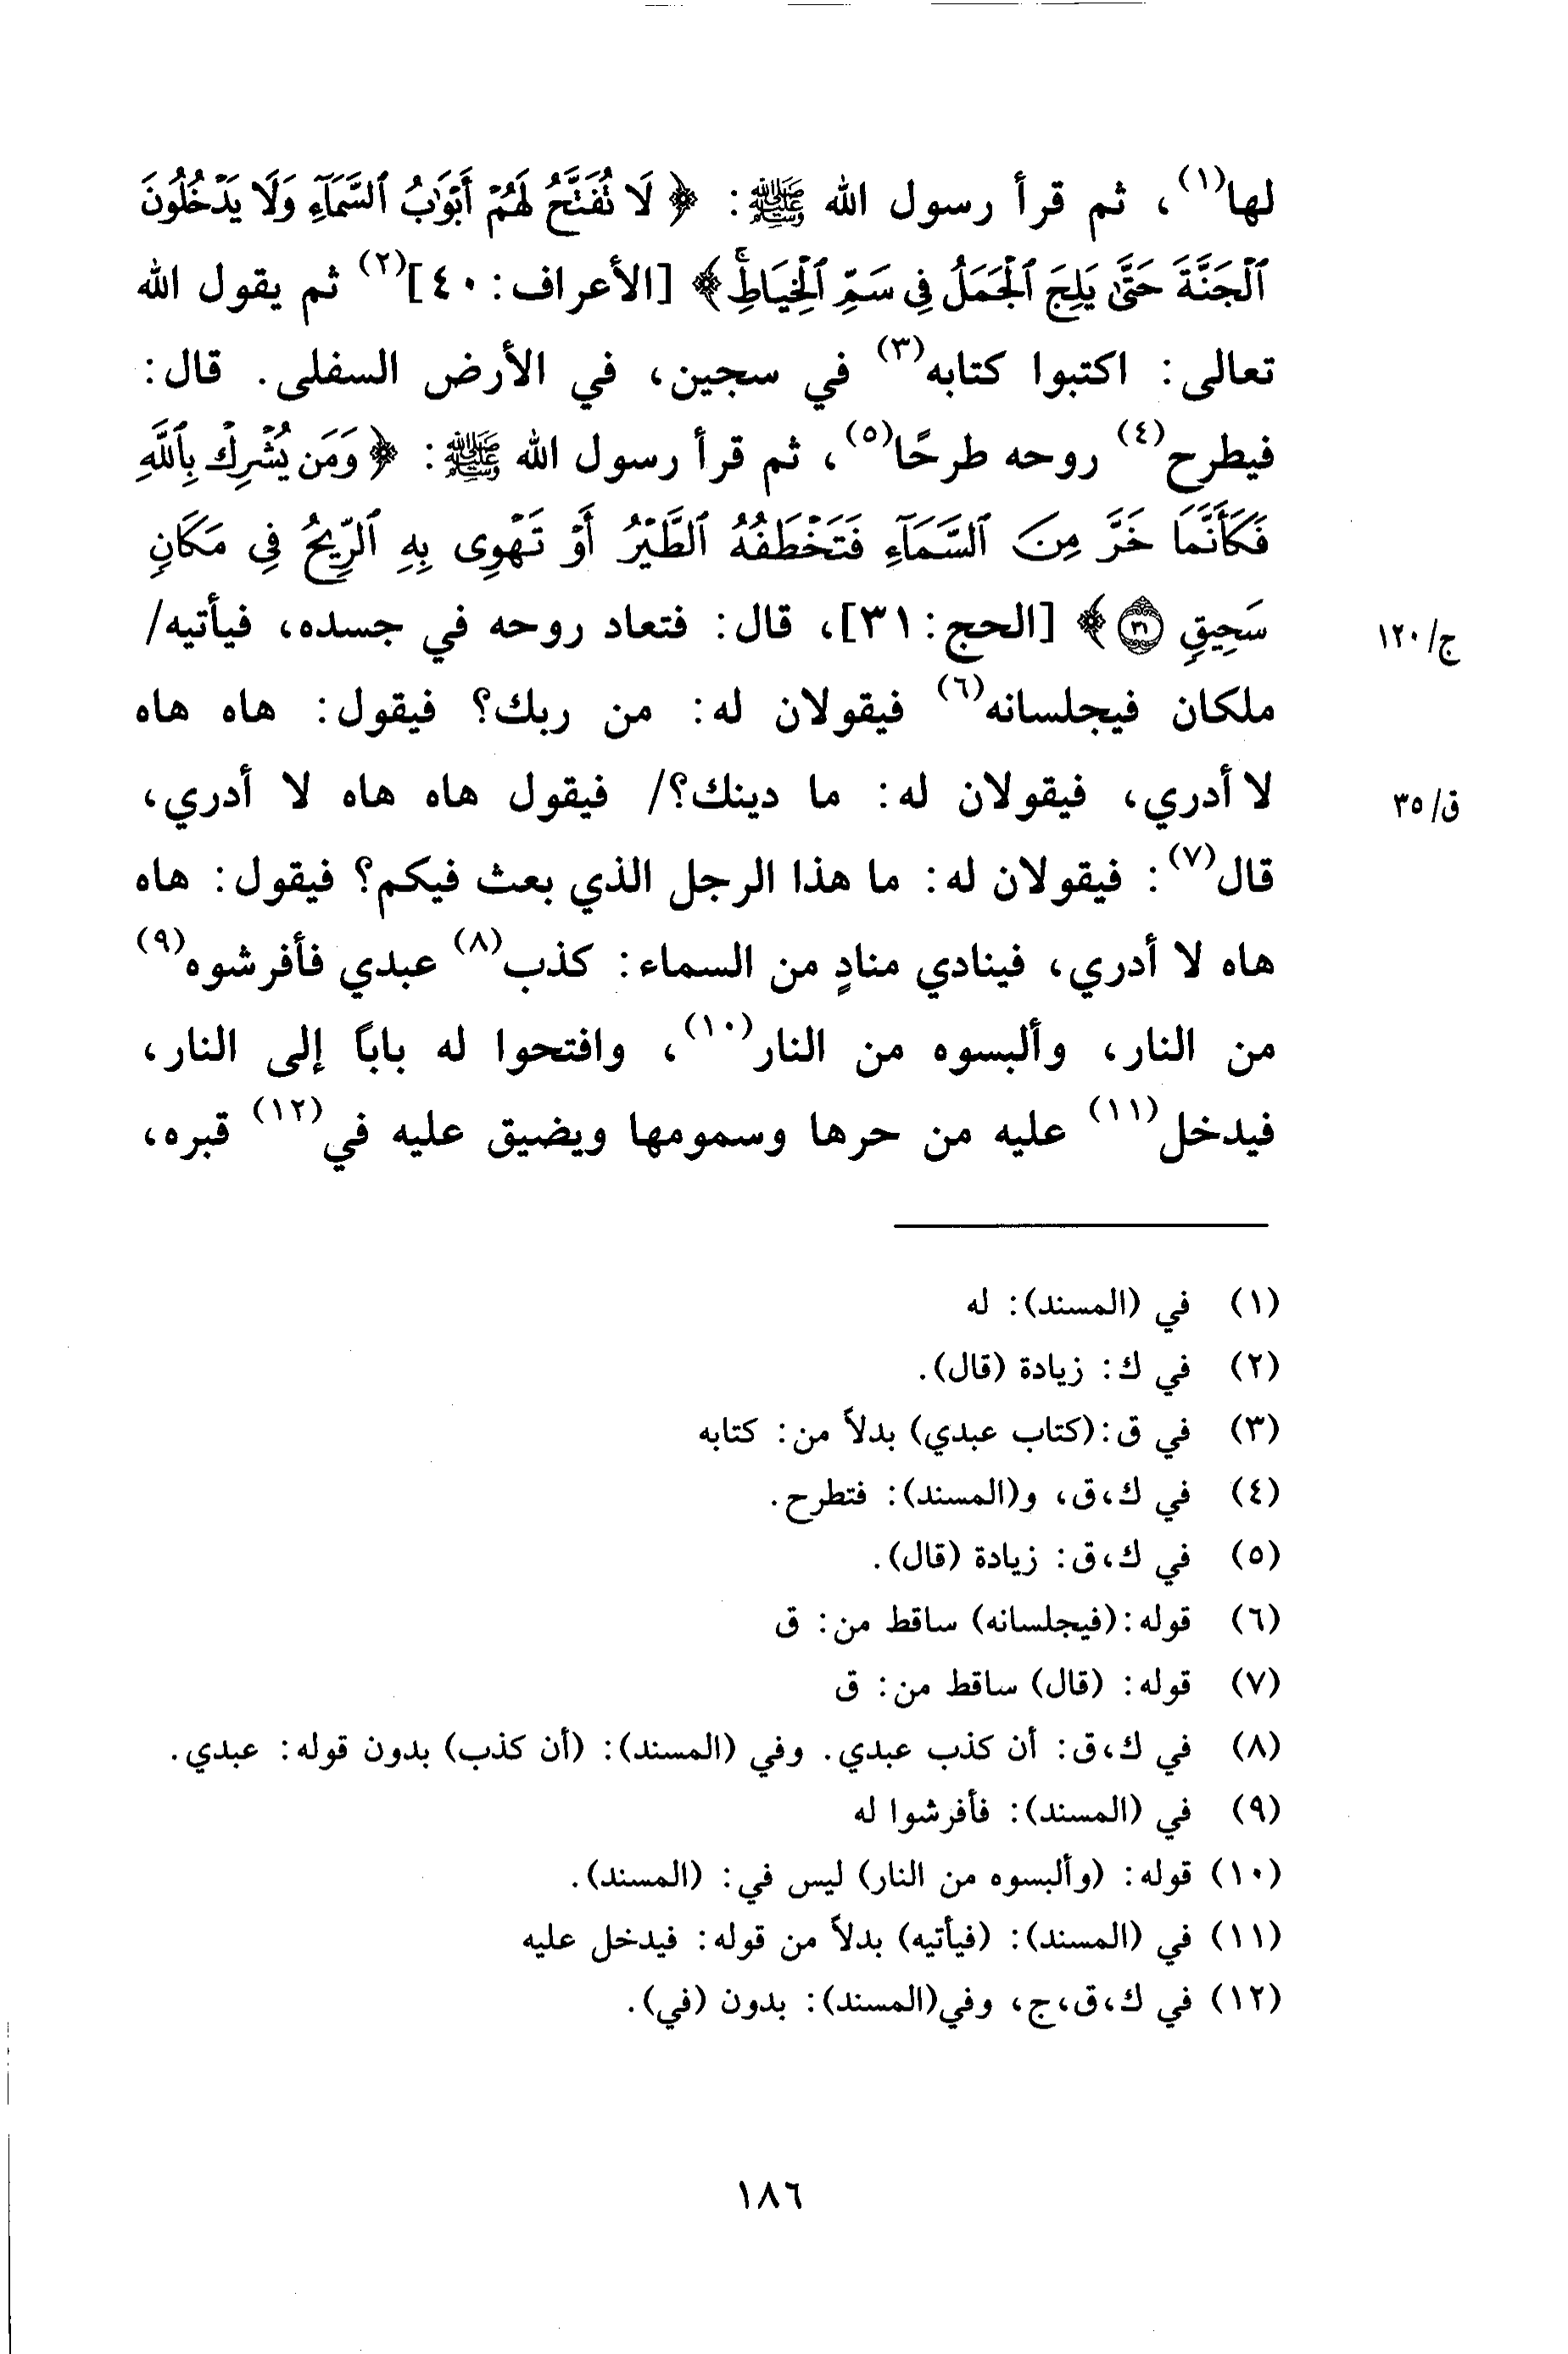 لها(١)، ثم قرأ رسول الله ﷺ: ﴿ لَا تُفَتَّحُ لَهُمْ أَبْوَٰبُ ٱلسَّمَآءِ وَلَا يَدْخُلُونَ
ٱلْجَنَّةَ حَتَّىٰ يَلِجَ ٱلْجَمَلُ فِى سَمِّ ٱلْخِيَاطِۚ ﴾ [الأعراف: ٤٠](٢) ثم يقول الله
تعالى: اكتبوا كتابه(٣) في سجين، في الأرض السفلى. قال:
فيطرح(٤) روحه طرحًا(٥)، ثم قرأ رسول الله ﷺ: ﴿ وَمَن يُشْرِكْ بِٱللَّهِ
فَكَأَنَّمَا خَرَّ مِنَ ٱلسَّمَآءِ فَتَخْطَفُهُ ٱلطَّيْرُ أَوْ تَهْوِى بِهِ ٱلرِّيحُ فِى مَكَانٍ
سَحِيقٍ ٣١ ﴾ [الحج: ٣١]، قال: فتعاد روحه في جسده، فيأتيه/
ج/١٢٠
ملكان فيجلسانه(٦) فيقولان له: من ربك؟ فيقول: هاه هاه
لا أدري، فيقولان له: ما دينك؟/ فيقول هاه هاه لا أدري،
ق/٣٥
قال(٧): فيقولان له: ما هذا الرجل الذي بعث فيكم؟ فيقول: هاه
هاه لا أدري، فينادي منادٍ من السماء: كذب(٨) عبدي فأفرشوه(٩)
من النار، وألبسوه من النار(١٠)، وافتحوا له باباً إلى النار،
فيدخل(١١) عليه من حرها وسمومها ويضيق عليه في(١٢) قبره،
(١) في (المسند): له
(٢) في ك: زيادة (قال).
(٣) في ق:(كتاب عبدي) بدلاً من: كتابه
(٤) في ك،ق، و(المسند): فتطرح.
(٥) في ك،ق: زيادة (قال).
(٦) قوله:(فيجلسانه) ساقط من: ق
(٧) قوله: (قال) ساقط من: ق
(٨) في ك،ق: أن كذب عبدي. وفي (المسند): (أن كذب) بدون قوله: عبدي.
(٩) في (المسند): فأفرشوا له
(١٠) قوله: (وألبسوه من النار) ليس في: (المسند).
(١١) في (المسند): (فيأتيه) بدلاً من قوله: فيدخل عليه
(١٢) في ك،ق،ج، وفي(المسند): بدون (في).
١٨٦